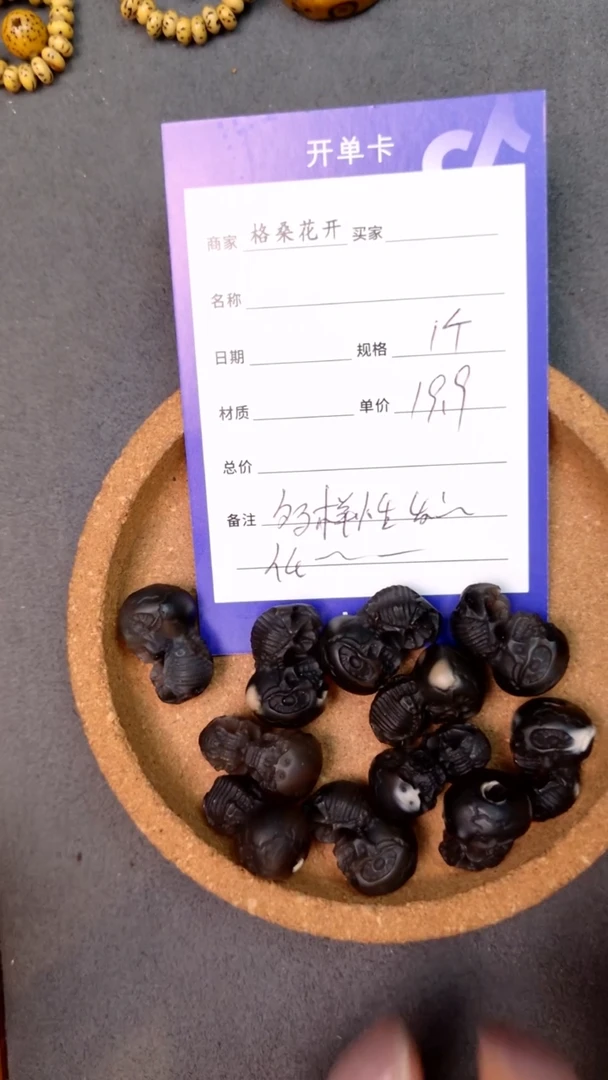 开单卡
商家 格桑花开 买家
名称
日期 规格 1个
材质 单价 19.9
总价
备注 多样性